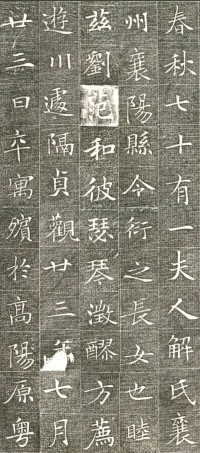 春秋七十有一夫人解氏襄
州襄陽縣令衍之長女也睦
茲劉范和彼瑟琴澂醪方薦
遊川遽隔貞觀廿三年七月
廿三日卒寓殯於高陽原粵